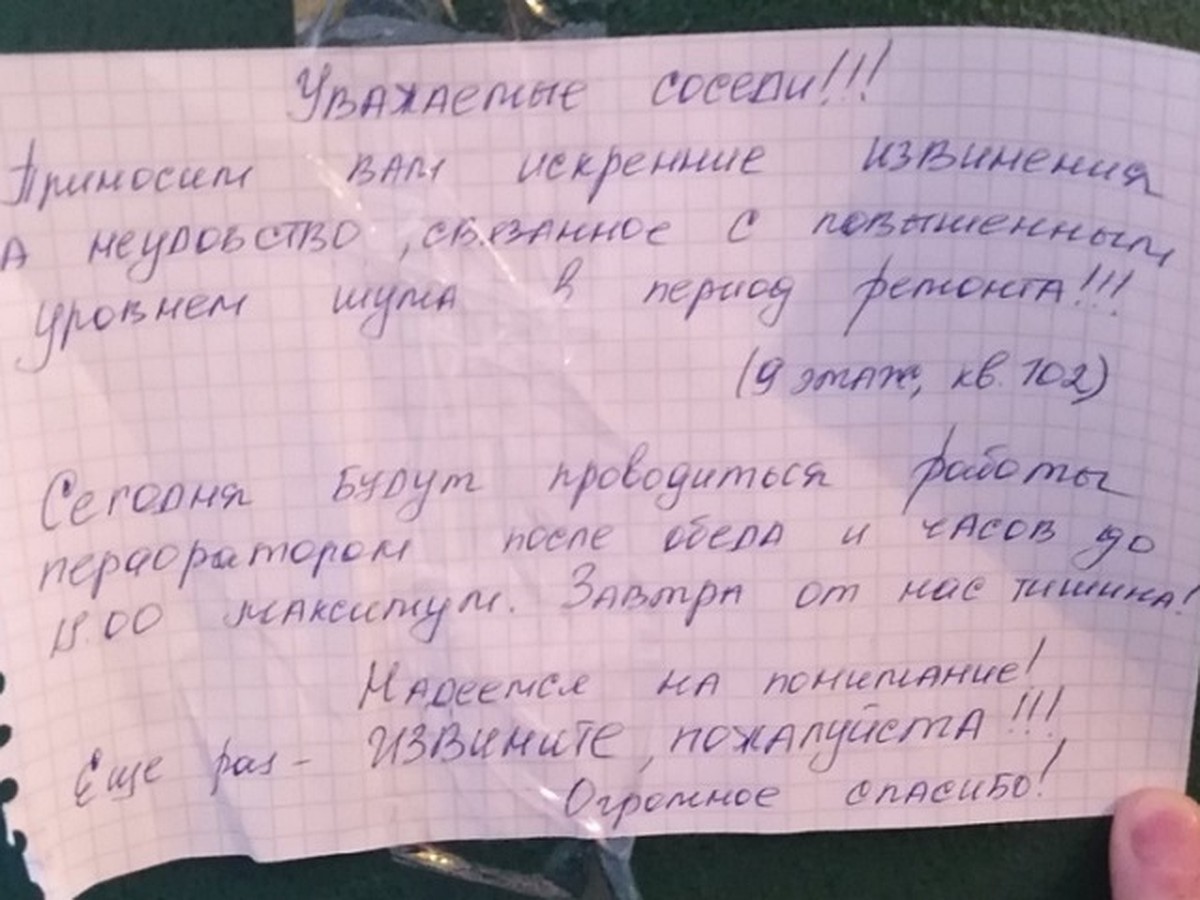 Уважаемые соседи!!!
Приносим вам искренние извинения
а неудобство, связанное с повышенным
уровнем шума в период ремонта!!!
(9 этаж, кв. 102)
Сегодня будут проводиться работы
перфоратором после обеда и часов до
18.00 максимум. Завтра от нас тишина!
Надеемся на понимание!
Еще раз - извините, пожалуйста!!!
Огромное спасибо!